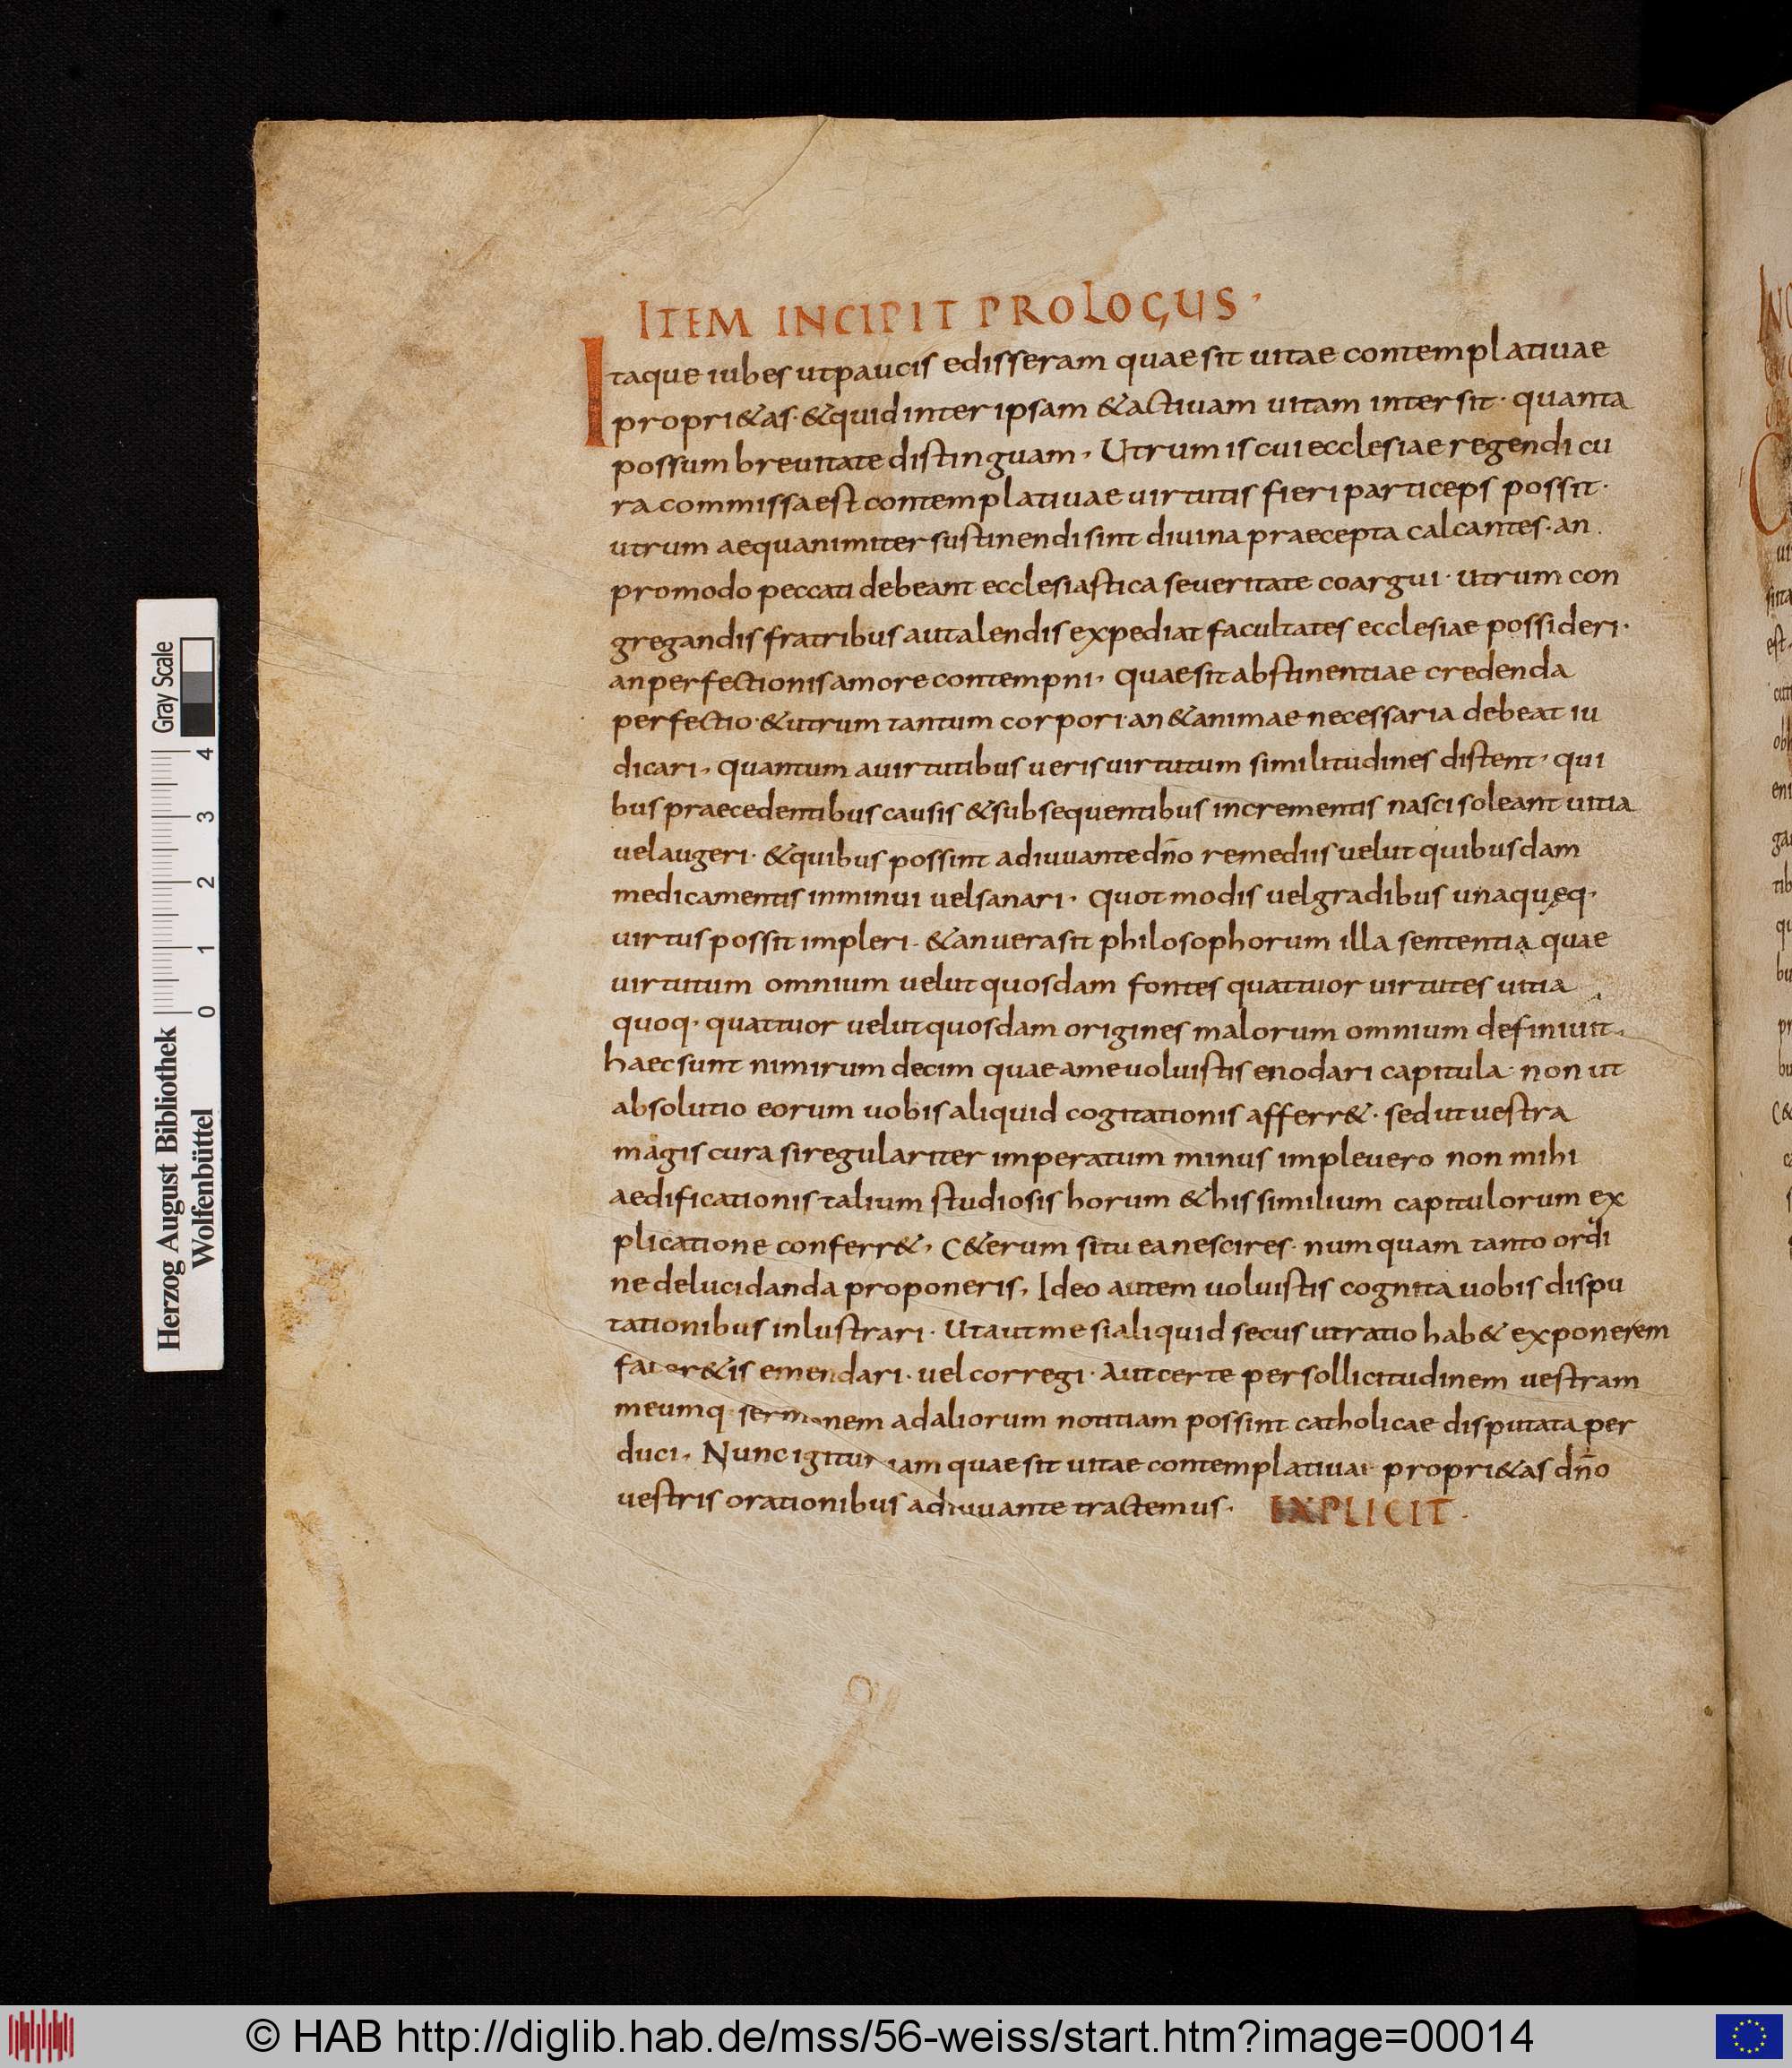 ITEM INCIPIT PROLOGUS·
Itaque iubes utpaucis edisseram quae sit uitae contemplatiuae
propri&as· &quid inter ipsam &actiuam uitam inter sit· quanta
possum breuitate distinguam· Utrum is cui ecclesiae regendi cu
ra commissa est contemplatiuae uirtutis fieri particeps possit·
utrum aequanimiter sustinendi sint diuina praecepta calcantes· an
promodo peccati debeant ecclesiastica seueritate coargui· utrum con
gregandis fratribus aut alendis expediat facultates ecclesiae possideri·
an perfectionis amore contempni· quae sit abstinentiae credenda
perfectio· &utrum tantum corpori· an &animae necessaria debeat iu
dicari· quantum auirtutibus ueris uirtutum similitudines distent· qui
bus praecedentibus causis &subsequentibus incrementis nasci soleant uitia
uel augeri· &quibus possint adiuuante dn̄o remediis uelut quibusdam
medicamentis inminui uel sanari· quot modis uel gradibus unaquęq·
uirtus possit impleri· &an uera sit philosophorum illa sententia quae
uirtutum omnium uelut quosdam fontes quattuor uirtutes uitia
quoq· quattuor uelut quosdam origines malorum omnium definiuit·
haec sunt nimirum decim quae ame uoluistis enodari capitula· non ut
absolutio eorum uobis aliquid cogitationis afferr&· sed ut uestra
magis cura si regulariter imperatum minus impleuero non mihi
aedificationis talium studiosis horum &his similium capitulorum ex
plicatione conferr&· C&erum si tu ea nescires· numquam tanto ordi
ne delucidanda proponeris· Ideo autem uoluistis cognita uobis dispu
tationibus inlustrari· Ut aut me si aliquid secus ut ratio hab& exponerem
facer&is emendari· uel corregi· Aut certe per sollicitudinem uestram
meumq· sermonem ad aliorum notitiam possint catholicae disputata per
duci· Nunc igitur iam quae sit uitae contemplatiuae propri&as dn̄o
uestris orationibus adiuuante tractemus· EXPLICIT·
Gray Scale
4 3 2 1 0
Herzog August Bibliothek
Wolfenbüttel
© HAB http://diglib.hab.de/mss/56-weiss/start.htm?image=00014